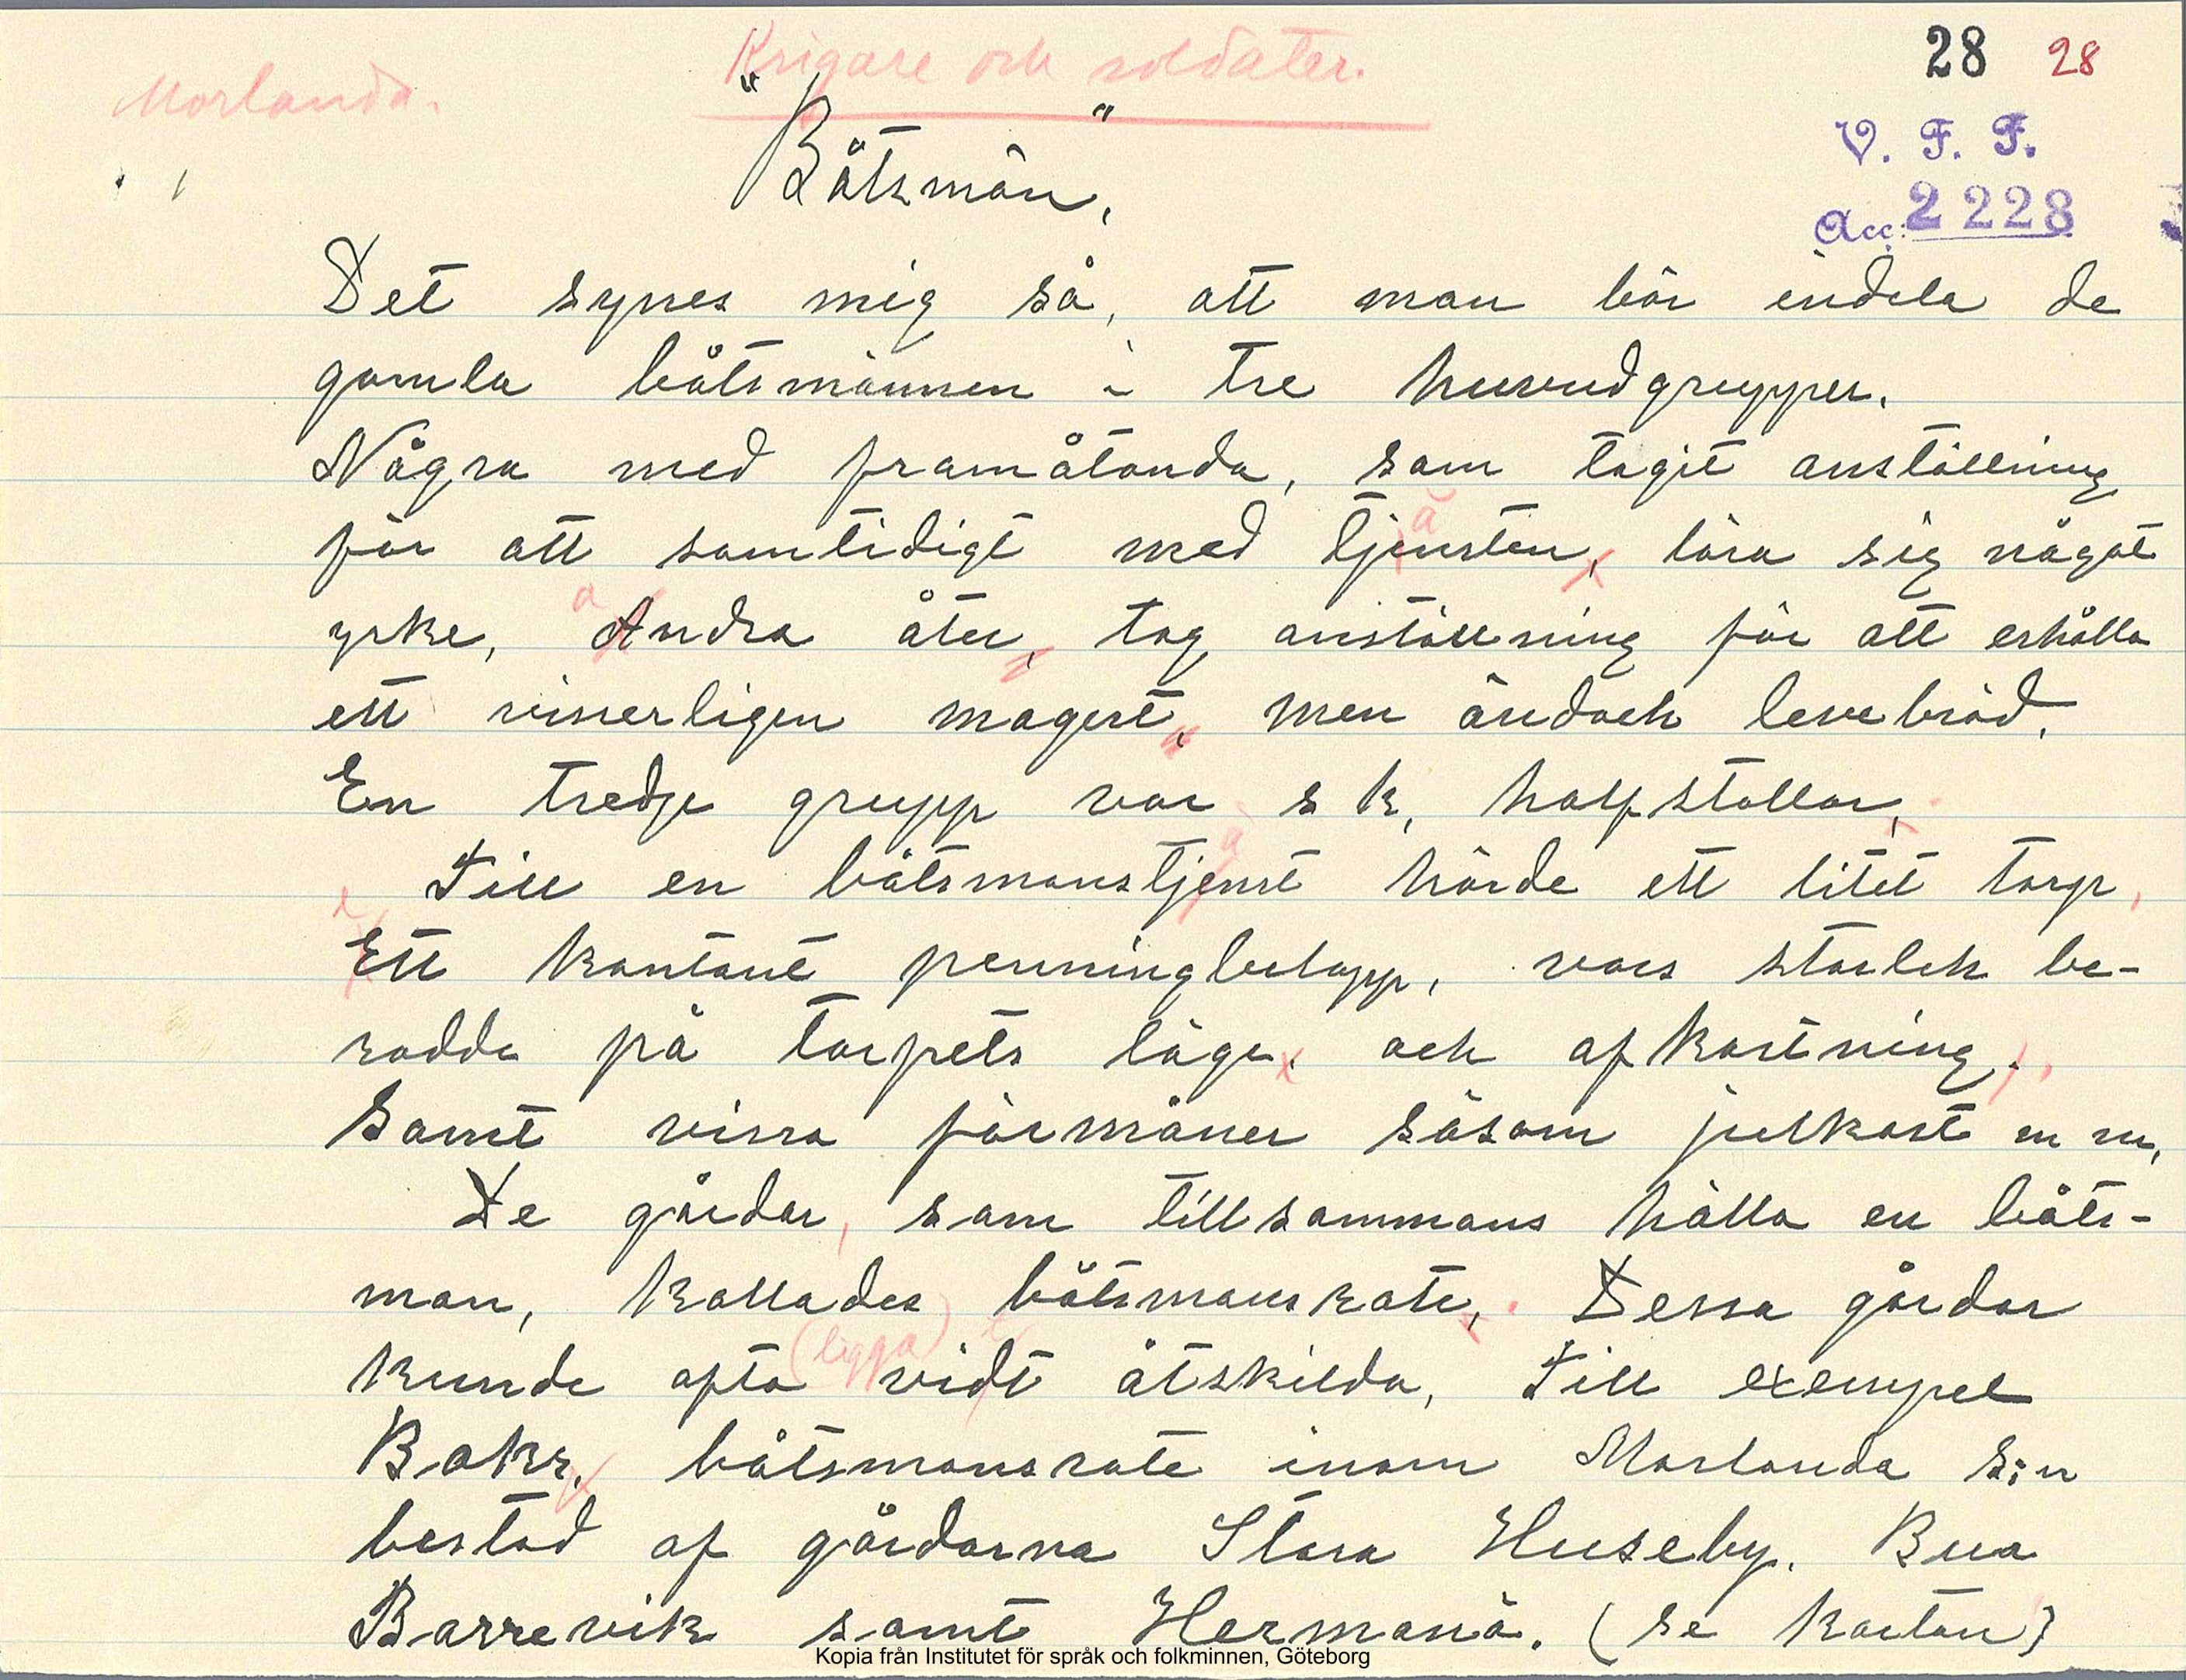 Krigare och soldater.
28 28
Morlanda.
"Båtsmän."
V. F. F.
Acc: 2228
Det synes mig så, att man bör indela de
gamla båtsmännen i tre huvudgrupper.
Några med framåtanda, som tagit anställning
för att samtidigt med tjensten, lära sig något
yrke, Andra åter, tog anställning för att erhålla
ett visserligen magert, men ändock levebröd.
En tredje grupp var s k, halfstallar,
Till en båtsmanstjenst hörde ett litet torp,
Ett kontant penningbelopp, vars storlek be-
rodde på torpets läge, och afkastning.
Samt vissa förmåner såsom julkost m m,
De gårdar, som tillsammans hålla en båts-
man, kallades båtsmansrote, Dessa gårdar
kunde ofta (ligga) vidt åtskilda, Till exempel
Bokr, båtsmansrote inom Morlanda s:n
bestod af gårdarna Stora Huseby, Bua
Barrevik samt Hermanö. (se kartan)
Kopia från Institutet för språk och folkminnen, Göteborg